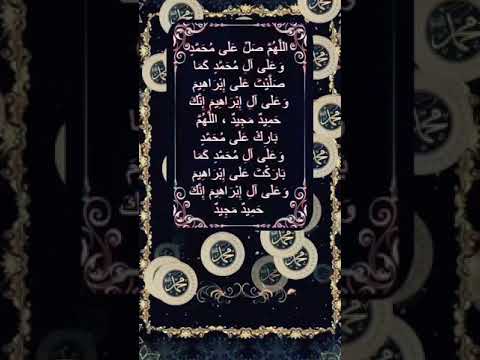 اللَّهُمَّ صَلِّ عَلَى مُحَمَّدٍ
وَعَلَى آلِ مُحَمَّدٍ كَمَا
صَلَّيْتَ عَلَى إِبْرَاهِيمَ
وَعَلَى آلِ إِبْرَاهِيمَ إِنَّكَ
حَمِيدٌ مَجِيدٌ ، اللَّهُمَّ
بَارِكْ عَلَى مُحَمَّدٍ
وَعَلَى آلِ مُحَمَّدٍ كَمَا
بَارَكْتَ عَلَى إِبْرَاهِيمَ
وَعَلَى آلِ إِبْرَاهِيمَ إِنَّكَ
حَمِيدٌ مَجِيدٌ
محمد
محمد
محمد
محمد
محمد
محمد